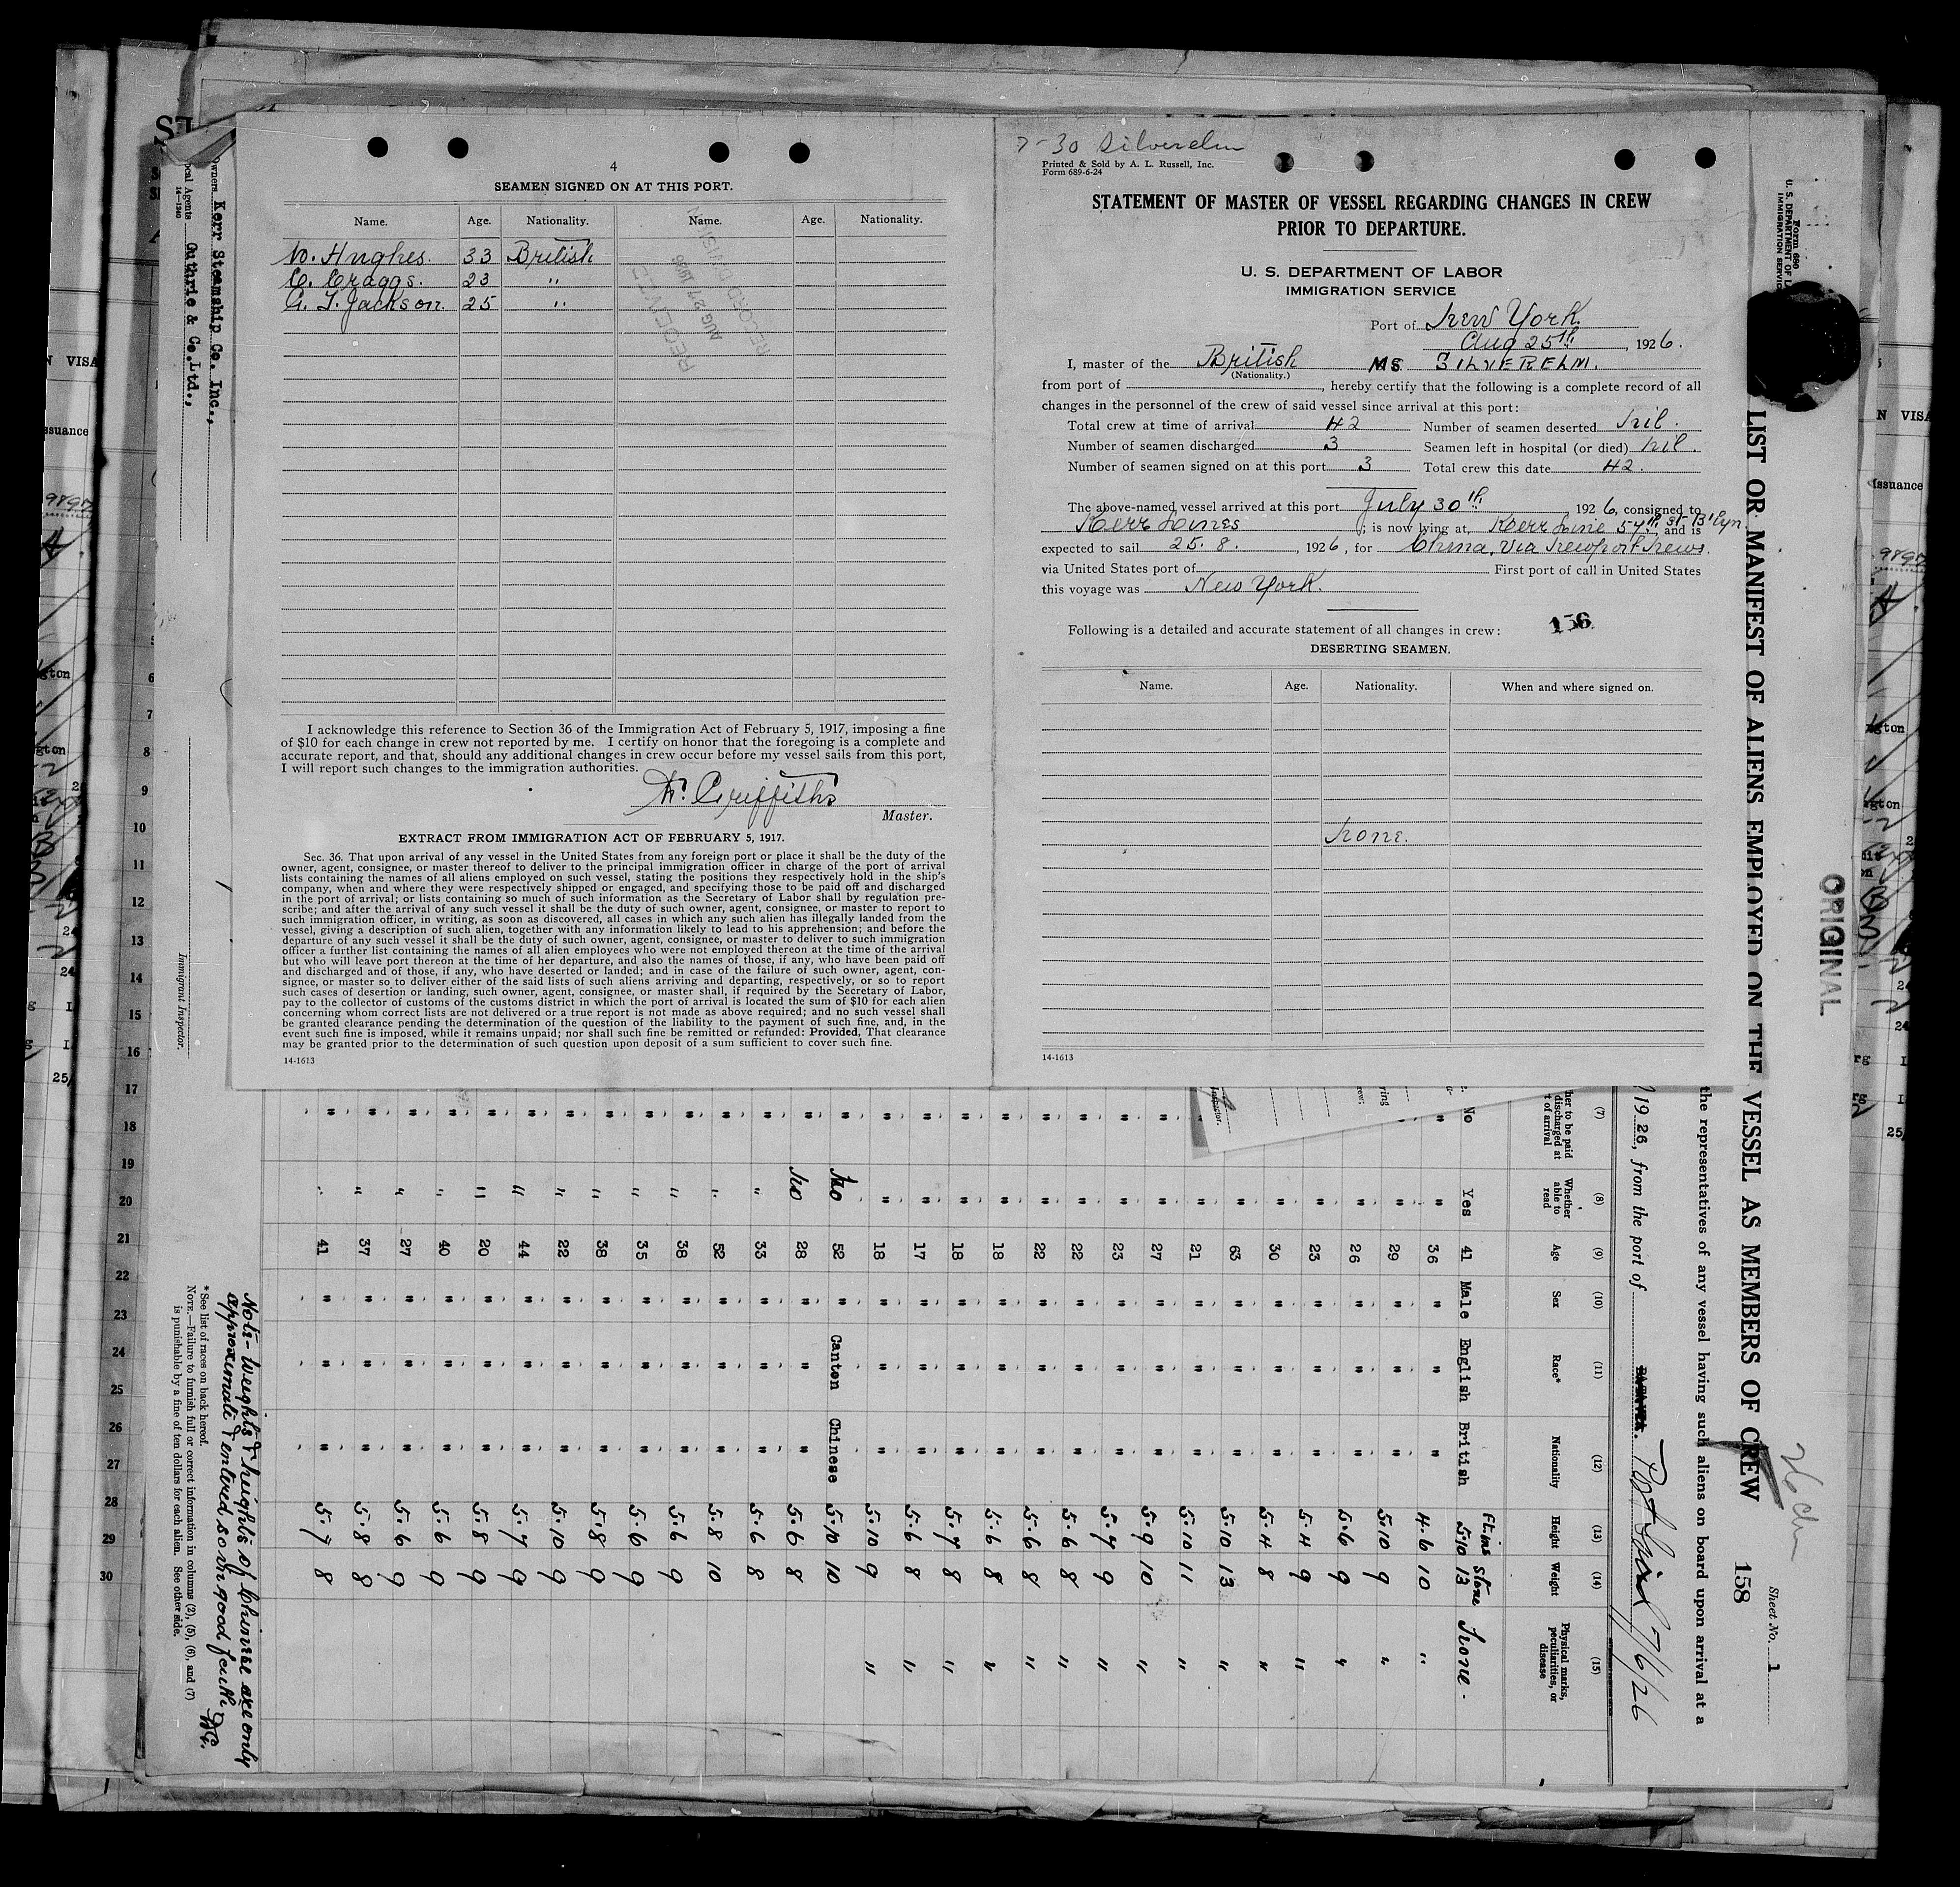 4
SEAMEN SIGNED ON AT THIS PORT.
Name. Age. Nationality. Name. Age. Nationality.
W. Hughes. 33 British
C. Craggs. 23 "
G. T. Jackson. 25 "
RECEIVED
AUG 27 1926
RECORD DIVISION
I acknowledge this reference to Section 36 of the Immigration Act of February 5, 1917, imposing a fine
of $10 for each change in crew not reported by me. I certify on honor that the foregoing is a complete and
accurate report, and that, should any additional changes in crew occur before my vessel sails from this port,
I will report such changes to the immigration authorities.
Griffiths
Master.
EXTRACT FROM IMMIGRATION ACT OF FEBRUARY 5, 1917.
Sec. 36. That upon arrival of any vessel in the United States from any foreign port or place it shall be the duty of the
owner, agent, consignee, or master thereof to deliver to the principal immigration officer in charge of the port of arrival
lists containing the names of all aliens employed on such vessel, stating the positions they respectively hold in the ship's
company, when and where they were respectively shipped or engaged, and specifying those to be paid off and discharged
in the port of arrival; or lists containing so much of such information as the Secretary of Labor shall by regulation pre-
scribe; and after the arrival of any such vessel it shall be the duty of such owner, agent, consignee, or master to report to
such immigration officer, in writing, as soon as discovered, all cases in which any such alien has illegally landed from the
vessel, giving a description of such alien, together with any information likely to lead to his apprehension; and before the
departure of any such vessel it shall be the duty of such owner, agent, consignee, or master to deliver to such immigration
officer a further list containing the names of all alien employees who were not employed thereon at the time of the arrival
but who will leave port thereon at the time of her departure, and also the names of those, if any, who have been paid off
and discharged and of those, if any, who have deserted or landed; and in case of the failure of such owner, agent, con-
signee, or master so to deliver either of the said lists of such aliens arriving and departing, respectively, or so to report
such cases of desertion or landing, such owner, agent, consignee, or master shall, if required by the Secretary of Labor,
pay to the collector of customs of the customs district in which the port of arrival is located the sum of $10 for each alien
concerning whom correct lists are not delivered or a true report is not made as above required; and no such vessel shall
be granted clearance pending the determination of the question of the liability to the payment of such fine, and, in the
event such fine is imposed, while it remains unpaid; nor shall such fine be remitted or refunded: Provided, That clearance
may be granted prior to the determination of such question upon deposit of a sum sufficient to cover such fine.
14-1613
7-30 Silverelm
Printed & Sold by A. L. Russell, Inc.
Form 689-6-24
STATEMENT OF MASTER OF VESSEL REGARDING CHANGES IN CREW
PRIOR TO DEPARTURE.
U. S. DEPARTMENT OF LABOR
IMMIGRATION SERVICE
Port of New York
Aug 25th, 1926.
I, master of the British MS SILVERELM.
(Nationality.)
from port of , hereby certify that the following is a complete record of all
changes in the personnel of the crew of said vessel since arrival at this port:
Total crew at time of arrival 42 Number of seamen deserted Nil.
Number of seamen discharged 3 Seamen left in hospital (or died) Nil.
Number of seamen signed on at this port 3 Total crew this date 42.
The above-named vessel arrived at this port July 30th, 1926, consigned to
Kerr Lines; is now lying at Kerr Line 57th St B'lyn and is
expected to sail 25. 8., 1926, for China, Via Newport News.
via United States port of First port of call in United States
this voyage was New York.
Following is a detailed and accurate statement of all changes in crew: 156
DESERTING SEAMEN.
Name. Age. Nationality. When and where signed on.
None.
14-1613
Owners Kerr Steamship Co. Inc.,
Local Agents Guthrie & Co. Ltd.,
14-1240
Immigrant Inspector.
Form 680
U. S. DEPARTMENT OF LABOR
IMMIGRATION SERVICE
ORIGINAL
Sheet No. 1
LIST OR MANIFEST OF ALIENS EMPLOYED ON THE VESSEL AS MEMBERS OF CREW 158
the representatives of any vessel having such aliens on board upon arrival at a
1926, from the port of 7/6/26
(7) (8) (9) (10) (11) (12) (13) (14) (15)
Whether able to read Age Sex Race* Nationality Height Weight Physical marks, peculiarities, or disease
ft ins Stone
No Yes 41 Male English British 5.10 13 None.
" " 36 " " " 4.6 10 "
" 29 " " " 5.10 9 "
" 26 " " " 5.6 9 "
" 23 " " " 5.4 9 "
" 30 " " " 5.4 8 "
" 63 " " " 5.10 13 "
" 21 " " " 5.10 11 "
" " 27 " " " 5.9 10 "
" " 23 " " " 5.7 9 "
" " 22 " " " 5.6 8 "
" " 22 " " " 5.6 8 "
" " 18 " " " 5.6 8 "
" " 18 " " " 5.7 8 "
" " 17 " " " 5.6 8 "
" " 18 " " " 5.10 9 "
" No 52 " Canton Chinese 5.10 10
" No 28 " " " 5.6 8
" " 33 " " " 5.6 8
" " 52 " " " 5.8 10
" " 38 " " " 5.6 9
" " 35 " " " 5.6 9
" " 38 " " " 5.8 9
" " 22 " " " 5.10 9
" " 44 " " " 5.7 9
" " 20 " " " 5.8 9
" " 40 " " " 5.6 9
" " 27 " " " 5.6 9
" " 37 " " " 5.8 8
" " 41 " " " 5.7 8
Note- Weights & heights of Chinese are only
approximate & entered so in good faith
* See list of races on back hereof.
NOTE.—Failure to furnish full or correct information in columns (2), (5), (6), and (7)
is punishable by a fine of ten dollars for each alien. See other side.
5
6
7
8
9
10
11
12
13
14
15
16
17
18
19
20
21
22
23
24
25
26
27
28
29
30